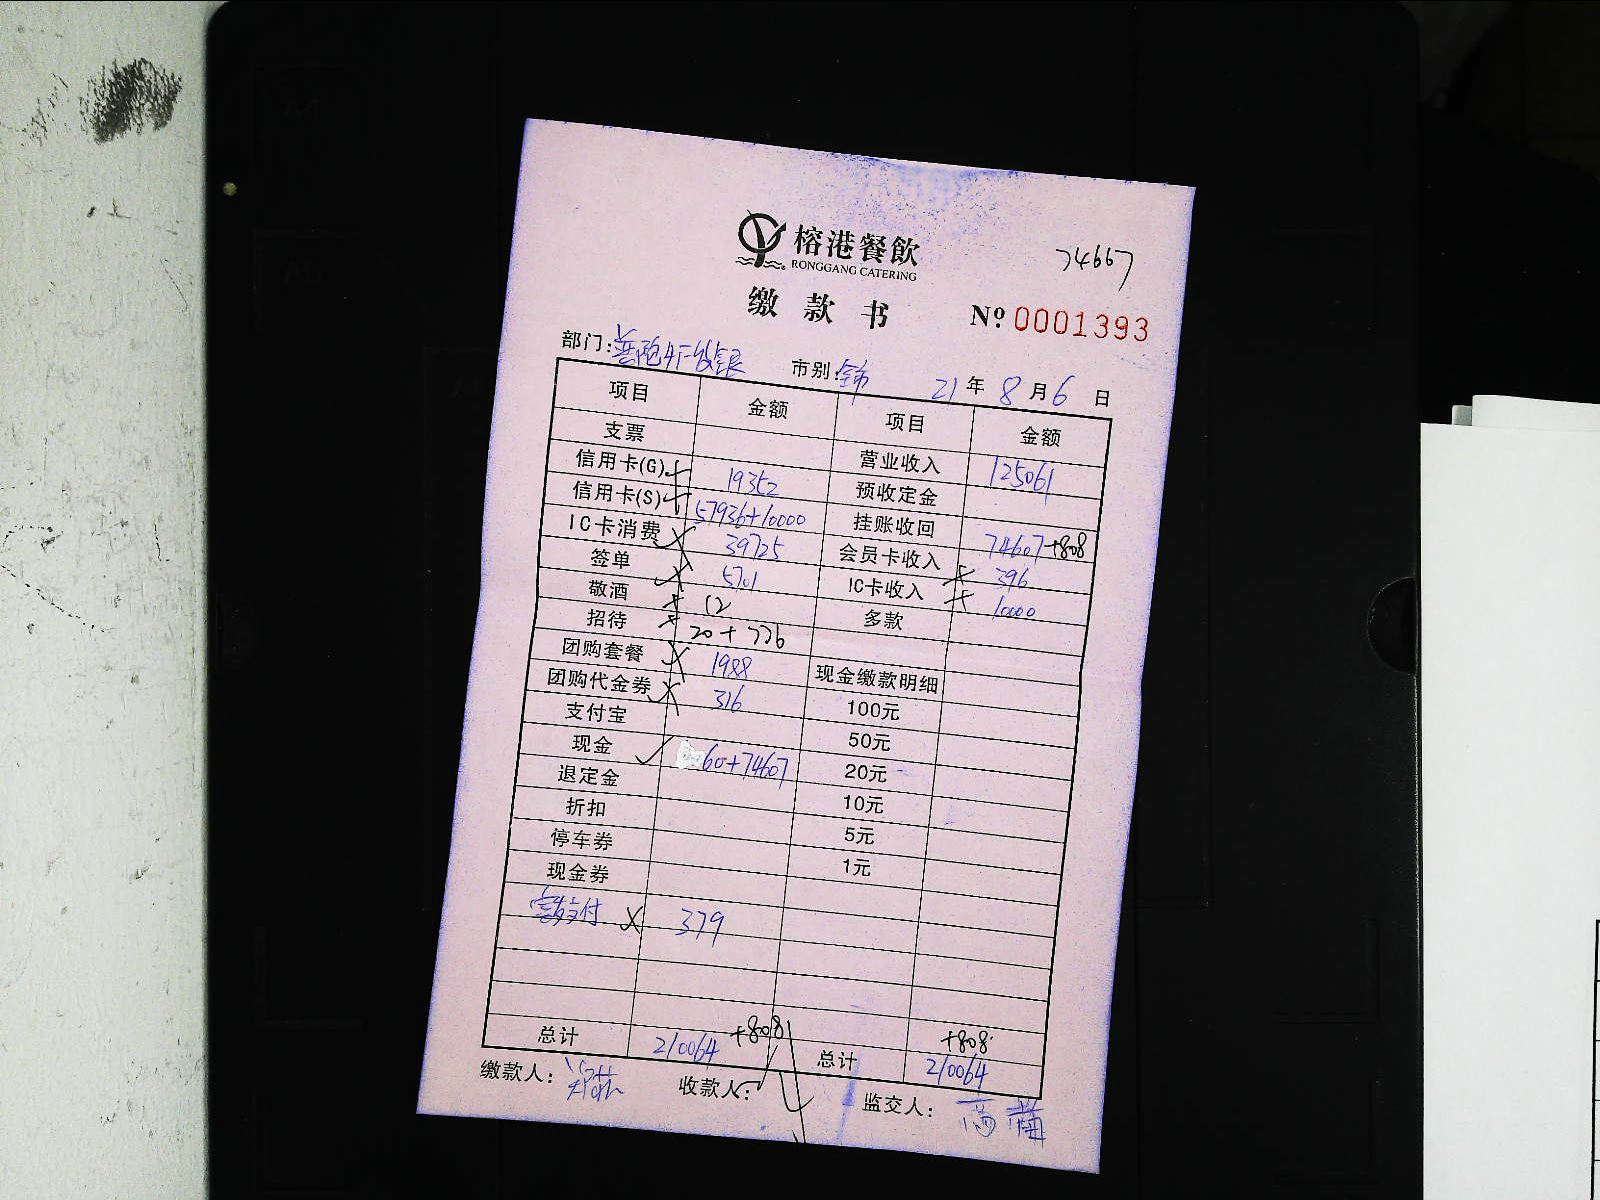 榕港餐飲
RONGGANG CATERING
74667
缴款书
Nº 0001393
部门: 市别: 全市 21年8月6日
项目 金额 项目 金额
支票 营业收入 125061
信用卡(G) 19352 预收定金
信用卡(S) 57936+10000 挂账收回 74607+808
IC卡消费 39725 会员卡收入 396
签单 5701 IC卡收入 10000
敬酒 12 多款
招待 20+776
团购套餐 1988 现金缴款明细
团购代金券 316 100元
支付宝 50元
现金 60+74607 20元
退定金 10元
折扣 5元
停车券 1元
现金券
379
总计 210064 +808 总计 210064 +808
缴款人: 收款人: 监交人: